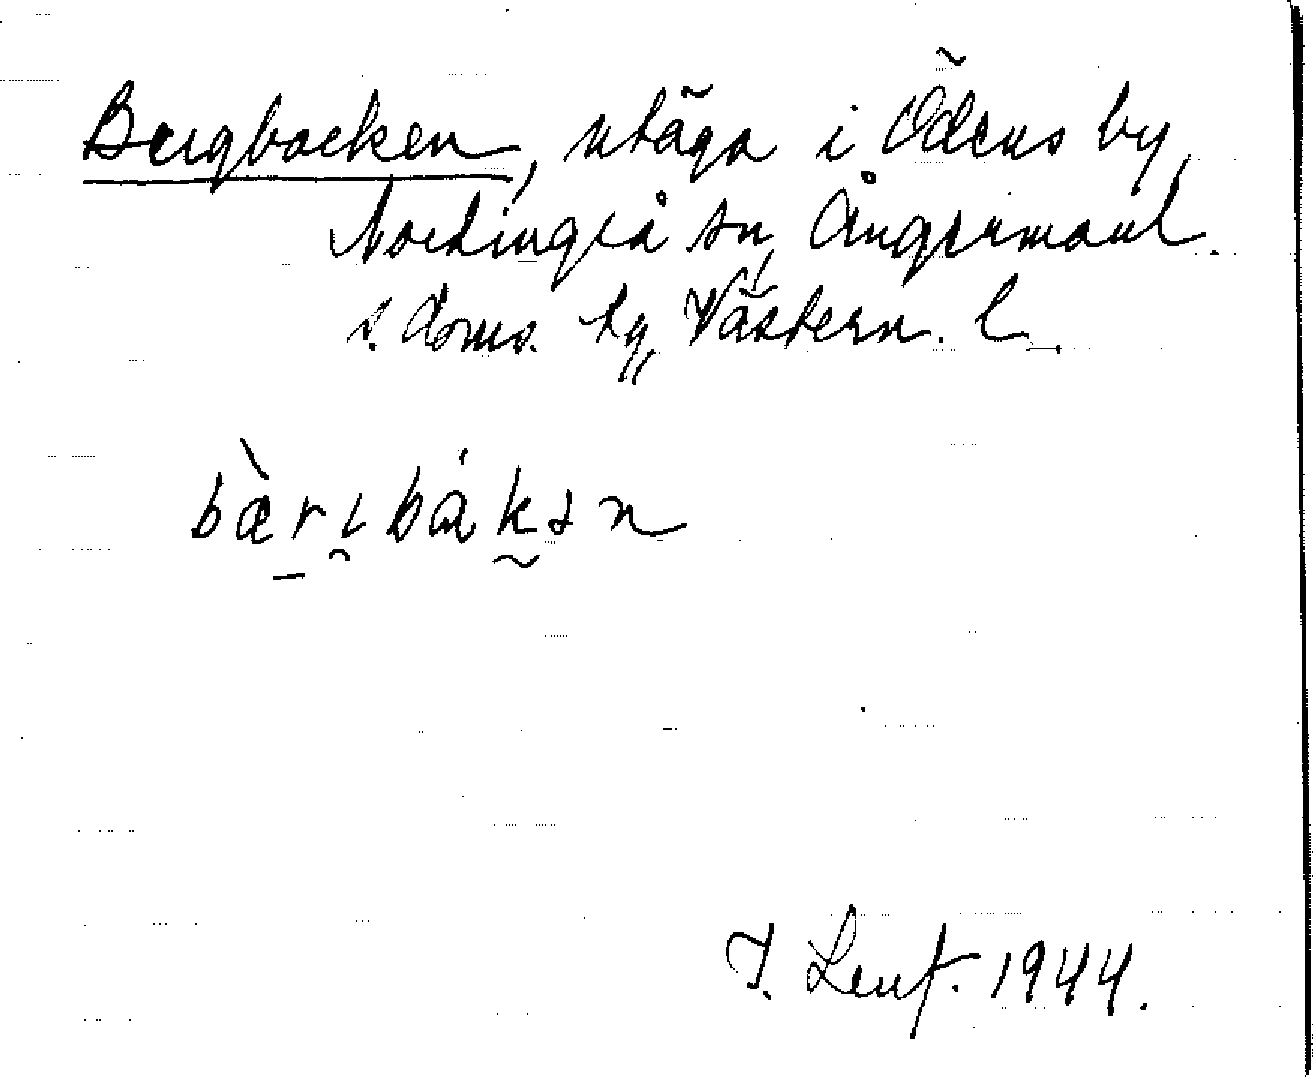 Bergbacken, utäga i Ödens by,
Nordingrå sn, Ångermanl.
s. doms. by, Västern. l.
bæ̀rɩbákən
J. Lenf. 1944.